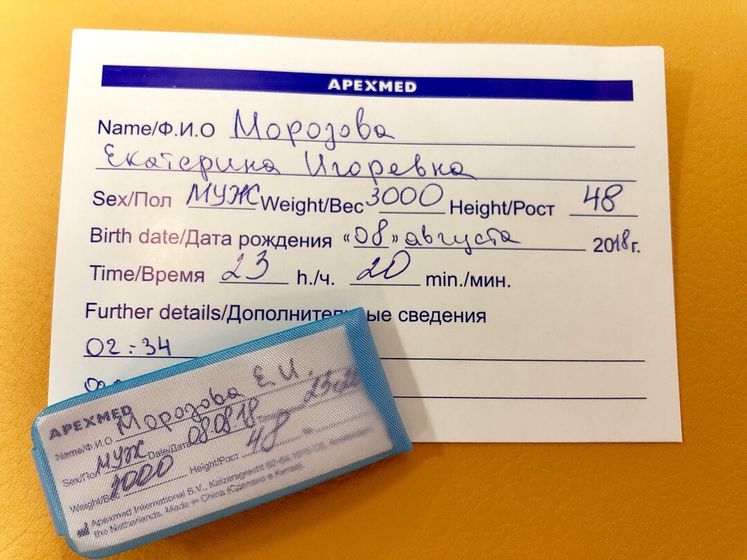 APEXMED
Name/Ф.И.О Морозова
Екатерина Игоревна
Sex/Пол МУЖ Weight/Вес 3000 Height/Рост 48
Birth date/Дата рождения «08» августа 2018г.
Time/Время 23 h./ч. 20 min./мин.
Further details/Дополнительные сведения
02:34
APEXMED
Name/Ф.И.О Морозова Е.И.
Sex/Пол МУЖ Date/Дата 080818 23:20
Weight/Вес 3000 Height/Рост 48
Apexmed International B.V., Keizersgracht 62-64, 1015 CS, Amsterdam,
the Netherlands. Made in China (Сделано в Китае).